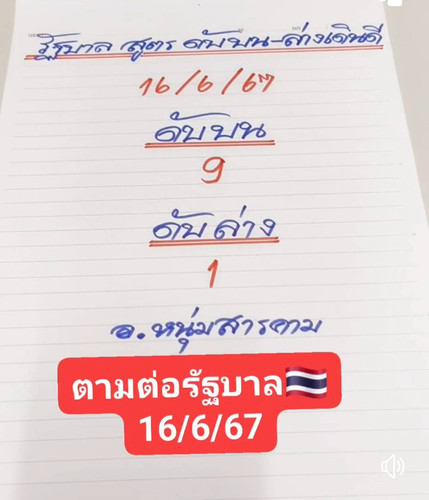 รัฐบาล สูตร ดับบน-ล่างเดินดี
16/6/67
ดับบน
9
ดับล่าง
1
อ.หนุ่มสารคาม
ตามต่อรัฐบาล🇹🇭
16/6/67